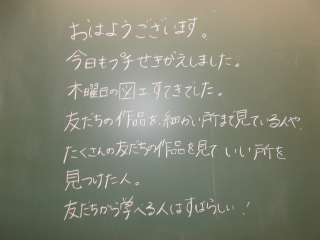 おはようございます。
今日もプチせきがえしました。
木曜日の図工すてきでした。
友だちの作品を、細かい所まで見ている人や、
たくさんの友だちの作品を見て いい所を
見つけた人。
友だちから学べる人はすばらしい!